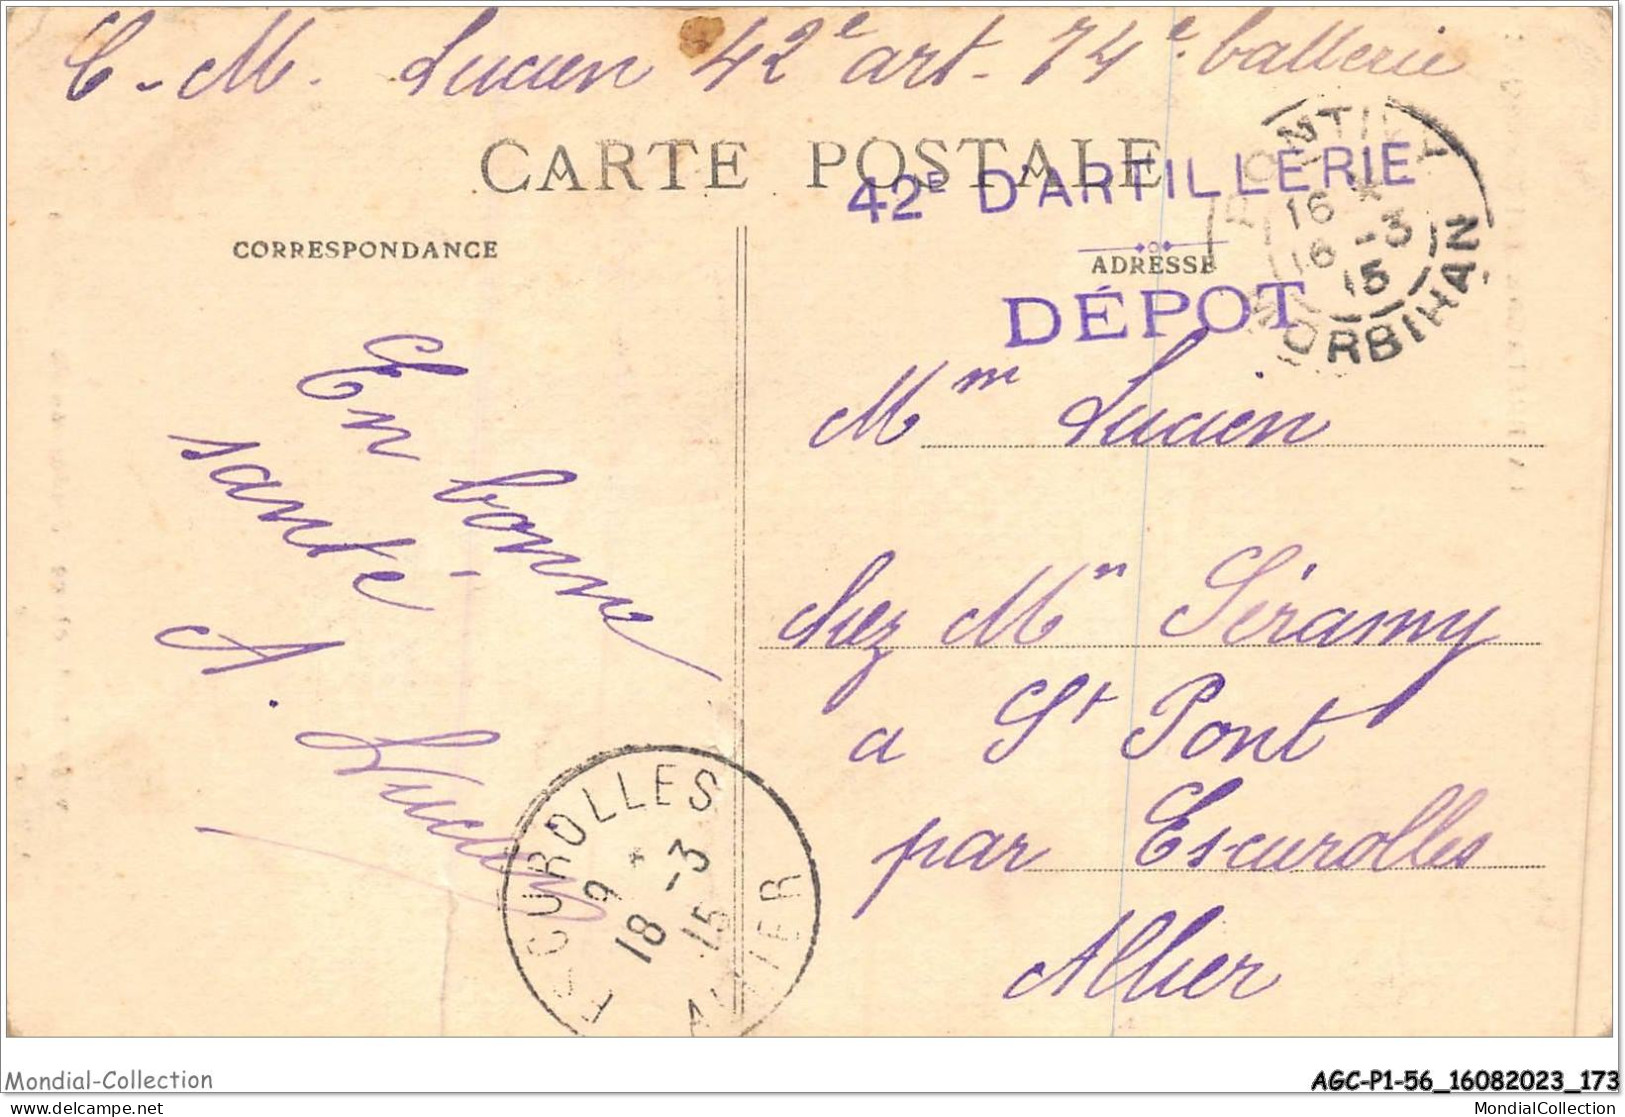 C. M. Lucien 42e art. 74e batterie
CARTE POSTALE
42E D'ARTILLERIE
DÉPOT
PONTIVY
16 *
16 -3
15
MORBIHAN
CORRESPONDANCE
ADRESSE
En bonne
santé
A. Lucien
Mm Lucien
chez Mm Séramy
a St Pont
par Escurolles
Allier
ESCUROLLES
9 *
18 -3
15
ALLIER
Mondial-Collection
AGC-P1-56_16082023_173
www.delcampe.net
MondialCollection